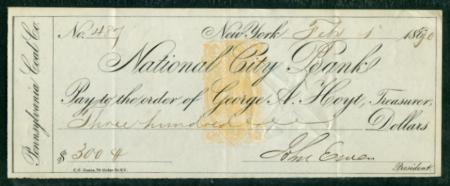 Pennsylvania Coal Co.
No. 487 New York Feb 1 1870
National City Bank
Pay to the order of George A. Hoyt, Treasurer,
Three hundred Dollars
$ 300 President.